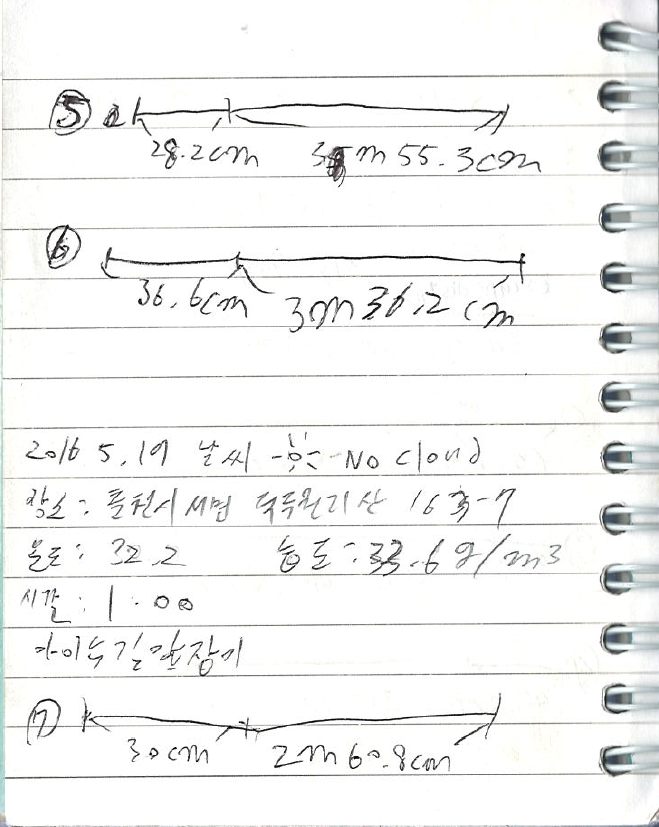 ⑤
28.2cm 3m 55.3cm
⑥
36.6cm 3m 36.2cm
2016 5.19 날씨 No cloud
장소: 춘천시 서면 덕두원리 산 16-7
온도: 32.2 습도: 33.6g/m3
시간: 1:00
⑦
30cm 2m 60.8cm